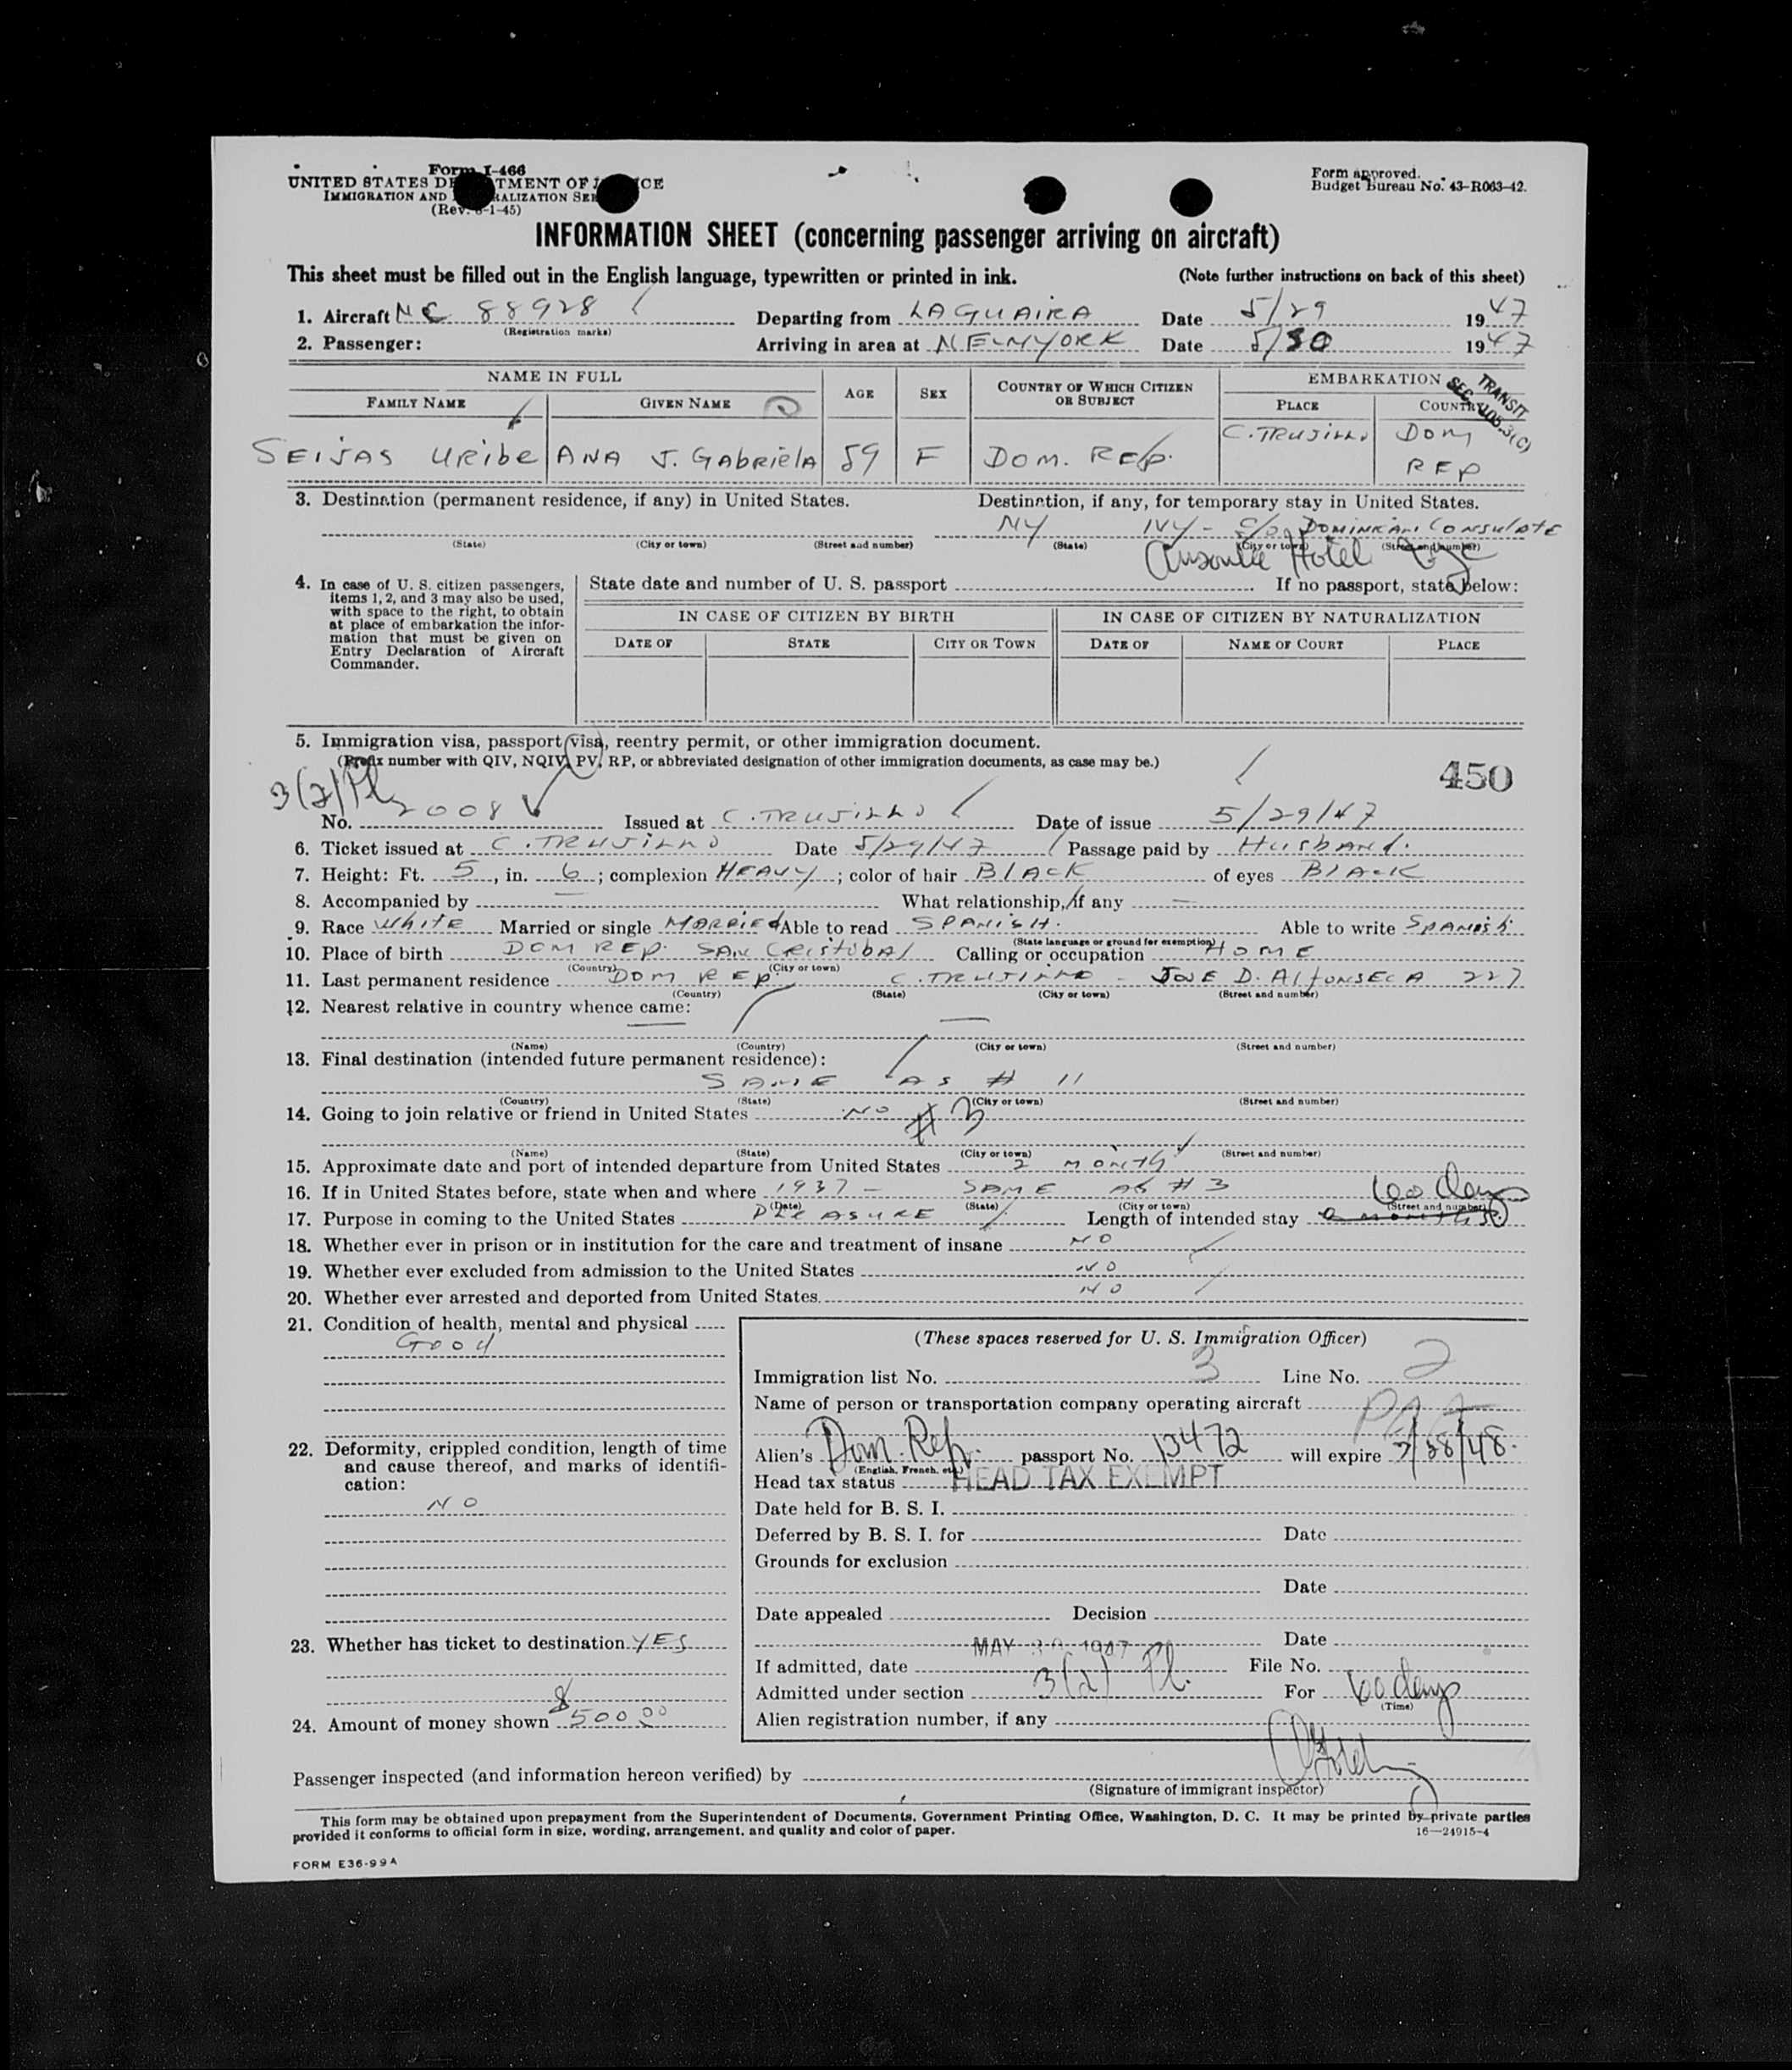 Form I-466
UNITED STATES DEPARTMENT OF JUSTICE
IMMIGRATION AND NATURALIZATION SERVICE
(Rev. 6-1-45)
Form approved.
Budget Bureau No. 43-R063-42.
INFORMATION SHEET (concerning passenger arriving on aircraft)
This sheet must be filled out in the English language, typewritten or printed in ink. (Note further instructions on back of this sheet)
1. Aircraft NC 88928 Departing from LAGUAIRA Date 5/29 1947
(Registration marks)
2. Passenger: Arriving in area at NEWYORK Date 5/30 1947
NAME IN FULL AGE SEX COUNTRY OF WHICH CITIZEN OR SUBJECT EMBARKATION
FAMILY NAME GIVEN NAME PLACE COUNTRY
TRANSIT
SEC. 105.3(C)
SEIJAS URIBE ANA J. GABRIELA 59 F DOM. REP. C. TRUJILLO DOM REP
3. Destination (permanent residence, if any) in United States. Destination, if any, for temporary stay in United States.
NY NY - C/O DOMINICAN CONSULATE
(State) (City or town) (Street and number) (State) (City or town) (Street and number)
Ansonia Hotel
4. In case of U. S. citizen passengers, items 1, 2, and 3 may also be used, with space to the right, to obtain at place of embarkation the information that must be given on Entry Declaration of Aircraft Commander.
State date and number of U. S. passport If no passport, state below:
IN CASE OF CITIZEN BY BIRTH IN CASE OF CITIZEN BY NATURALIZATION
DATE OF STATE CITY OR TOWN DATE OF NAME OF COURT PLACE
5. Immigration visa, passport visa, reentry permit, or other immigration document.
(Prefix number with QIV, NQIV, PV, RP, or abbreviated designation of other immigration documents, as case may be.)
450
3(2) Pl
No. 2008 Issued at C. TRUJILLO Date of issue 5/29/47
6. Ticket issued at C. TRUJILLO Date 5/29/47 Passage paid by HUSBAND.
7. Height: Ft. 5, in. 6; complexion HEAVY; color of hair BLACK of eyes BLACK
8. Accompanied by — What relationship, if any —
9. Race WHITE Married or single MARRIED Able to read SPANISH. Able to write SPANISH
(State language or ground for exemption)
10. Place of birth DOM REP. SAN CRISTOBAL Calling or occupation HOME
(Country) (City or town)
11. Last permanent residence DOM REP. C. TRUJILLO - JOSE D. ALFONSECA 227
(Country) (State) (City or town) (Street and number)
12. Nearest relative in country whence came:
— —
(Name) (Country) (City or town) (Street and number)
13. Final destination (intended future permanent residence):
SAME AS # 11
(Country) (State) (City or town) (Street and number)
14. Going to join relative or friend in United States NO # 3
(Name) (State) (City or town) (Street and number)
15. Approximate date and port of intended departure from United States 2 MONTHS
16. If in United States before, state when and where 1937 - SAME AS # 3
(Date) (State) (City or town) (Street and number)
60 days
17. Purpose in coming to the United States PLEASURE Length of intended stay
18. Whether ever in prison or in institution for the care and treatment of insane NO
19. Whether ever excluded from admission to the United States NO
20. Whether ever arrested and deported from United States NO
21. Condition of health, mental and physical
GOOD
22. Deformity, crippled condition, length of time and cause thereof, and marks of identification:
NO
23. Whether has ticket to destination YES
24. Amount of money shown $500.00
(These spaces reserved for U. S. Immigration Officer)
Immigration list No. 3 Line No. 2
Name of person or transportation company operating aircraft PAA
Alien's Dom. Rep. passport No. 13472 will expire
(English, French, etc.)
Head tax status HEAD TAX EXEMPT
Date held for B. S. I.
Deferred by B. S. I. for Date
Grounds for exclusion
Date
Date appealed Decision
Date
If admitted, date MAY 30 1947 File No.
Admitted under section 3(2) Pl. For 60 days
(Time)
Alien registration number, if any
Passenger inspected (and information hereon verified) by
(Signature of immigrant inspector)
This form may be obtained upon prepayment from the Superintendent of Documents, Government Printing Office, Washington, D. C. It may be printed by private parties
provided it conforms to official form in size, wording, arrangement, and quality and color of paper.
16—24915-4
FORM E36-99A